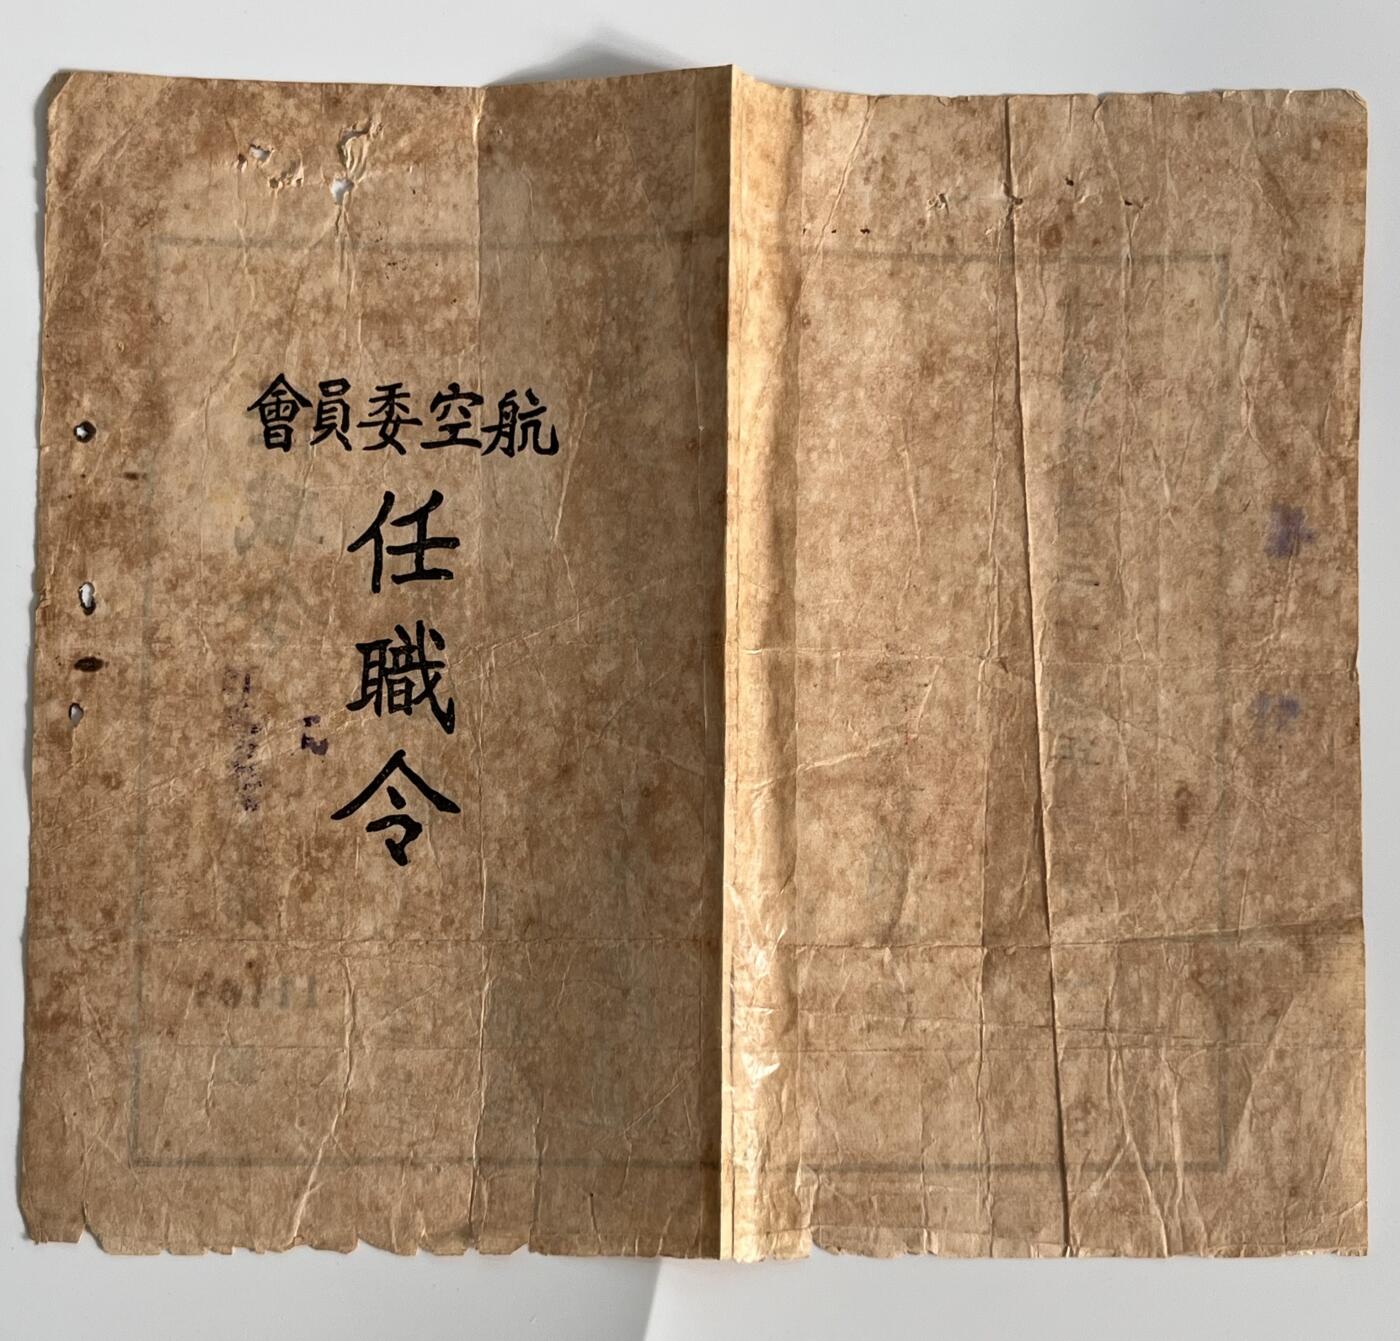 航空委員會
任職令